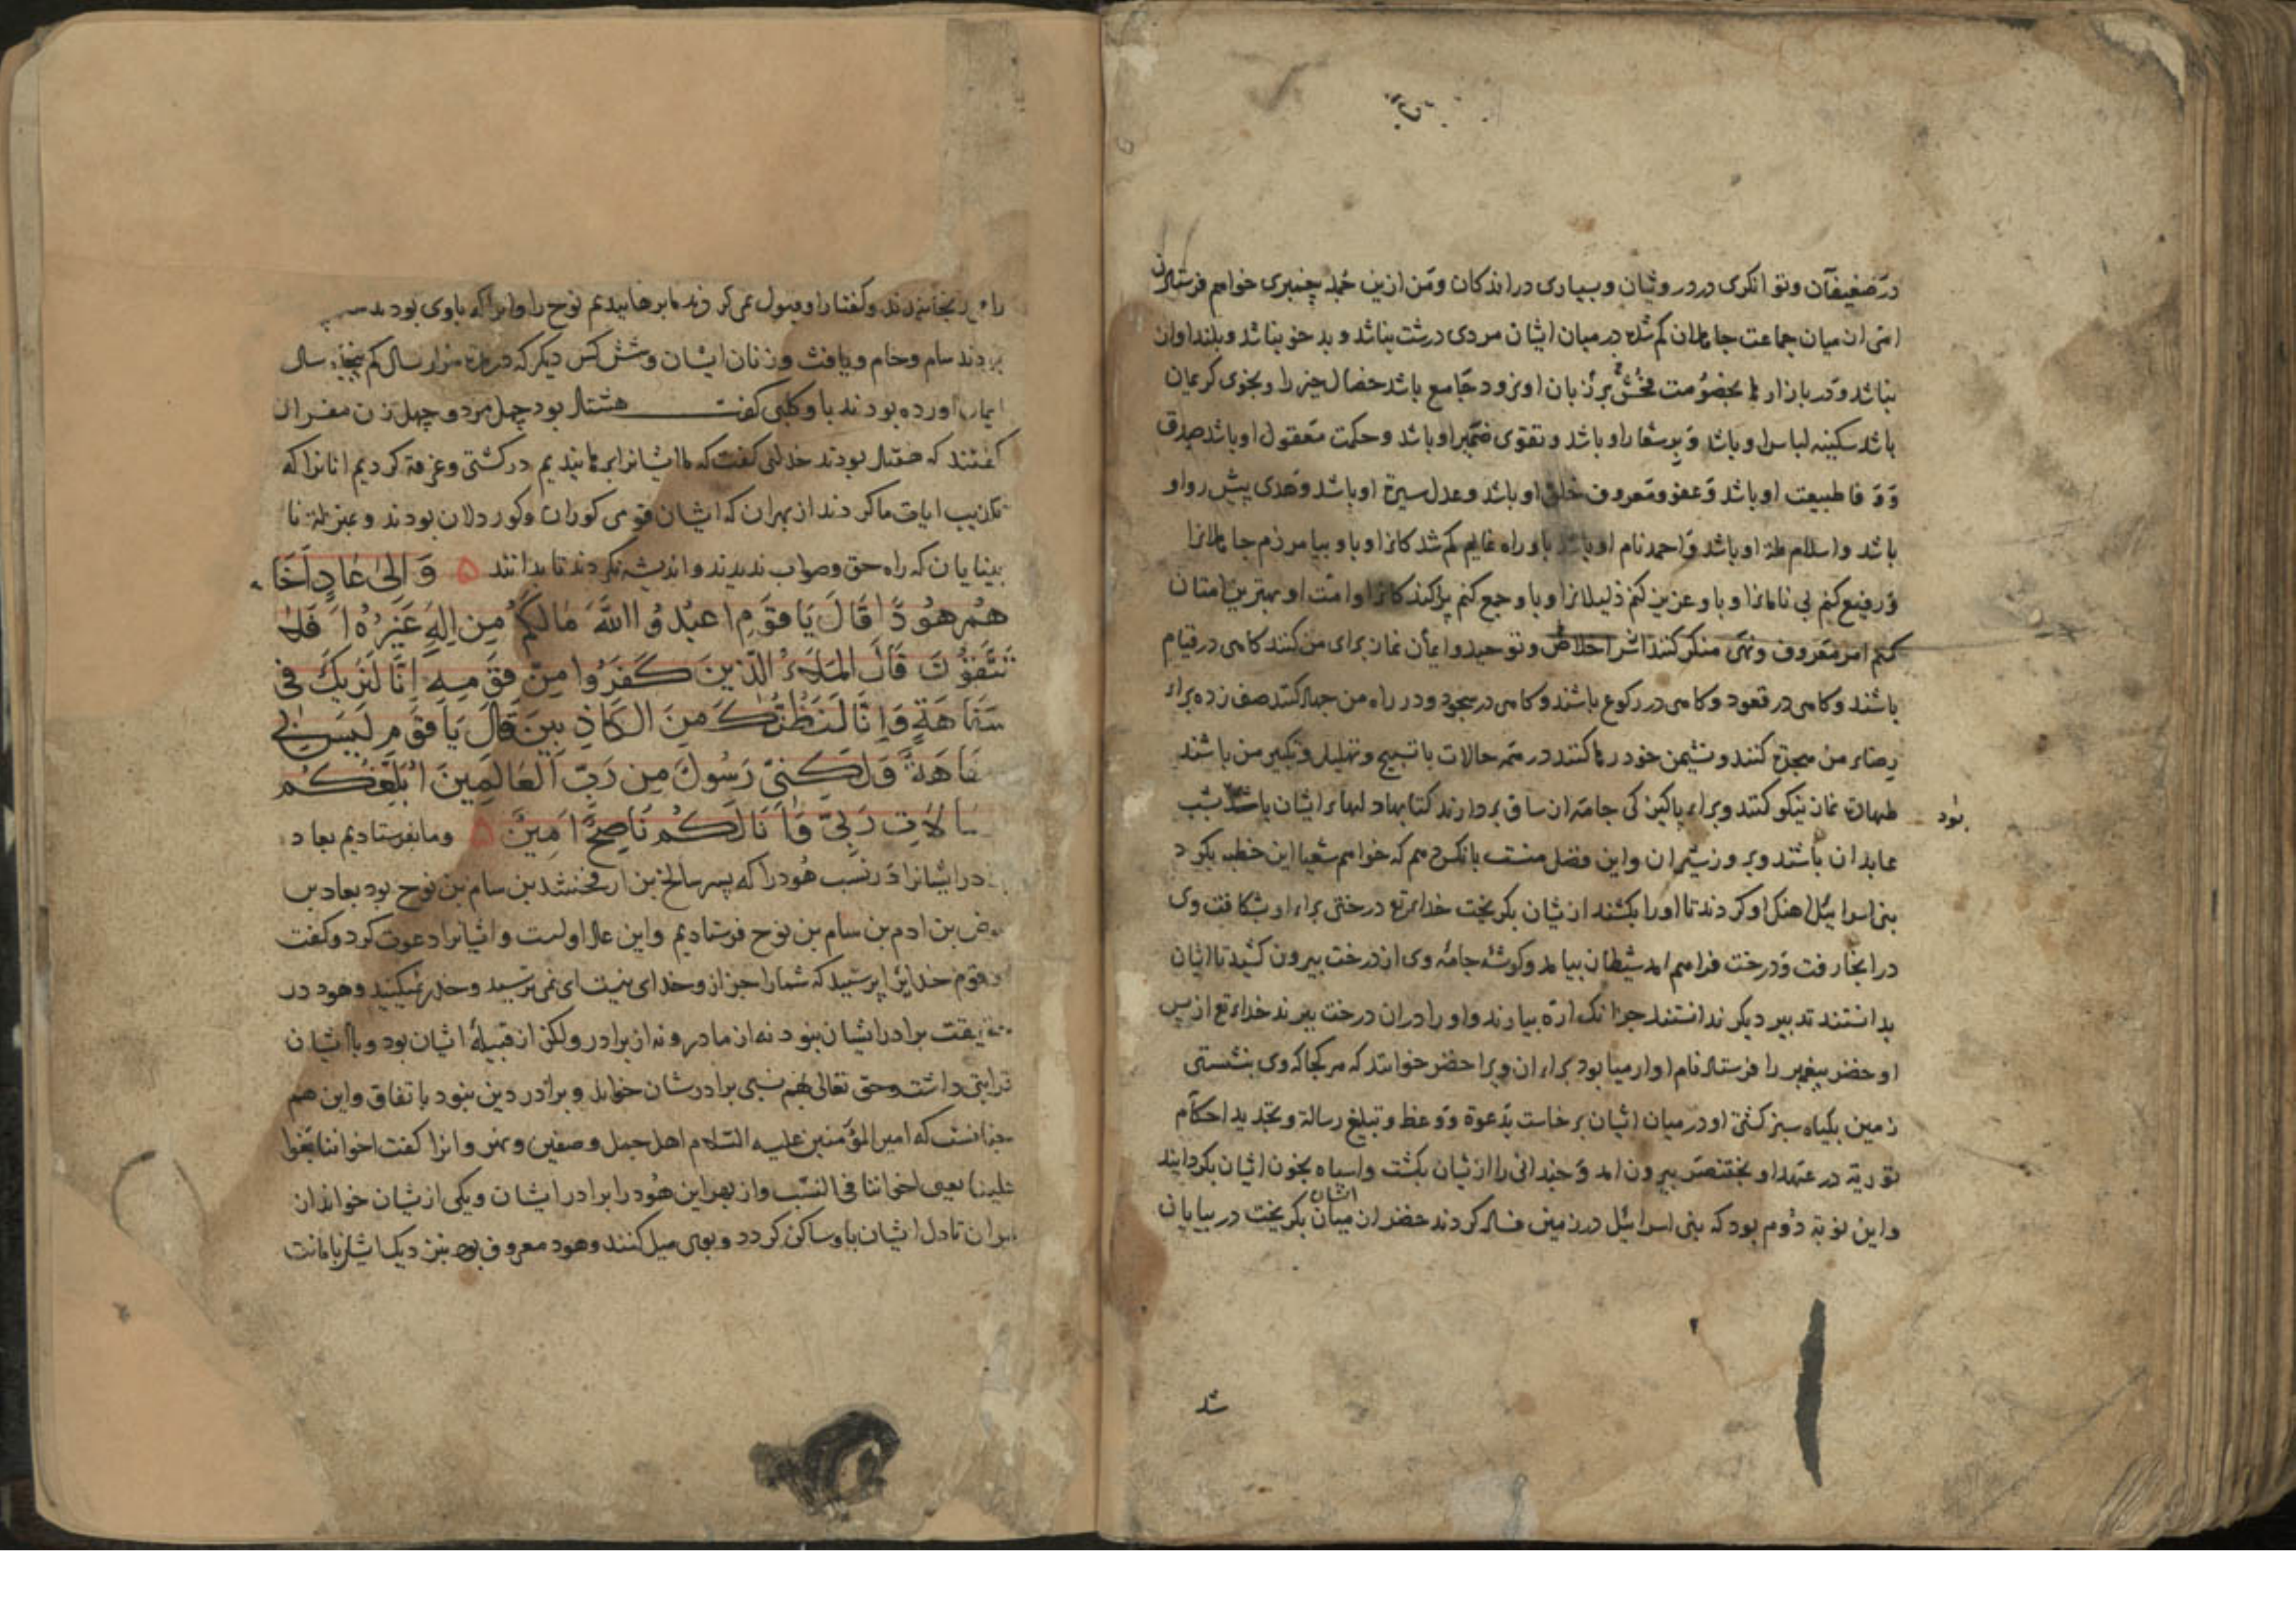 در ضعیفان و توانکری در درویشان و بسیاری در اندکان و من ازین جمله پیغمبری خواهم فرستادن
امی از میان جماعت جاهلان کم شده در میان ایشان مردی درشت نباشد و بد خو نباشد و بلند اوان
نباشد و در بازارها بخصومت فحش بر زبان او نرود جامع باشد خصال خیر را و بخوی کریمان
باشد سکینه لباس او باشد و بر شعار او باشد و تقوی ضمیر او باشد و حکمت معقول او باشد صدق
و وفا طبیعت او باشد و عفو و معروف خلق او باشد و عدل سیرة او باشد و هدی پیش رو او
باشد و اسلام ملة او باشد و احمد نام او باشد باو راه نمایم کم شدکانرا و باو بیاموزم جاهلانرا
و رفیع کنم بی نامانرا و باو عزیز کنم ذلیلانرا و باو جمع کنم پراکندکانرا و امت او بهترین امتان
کنم امر معروف ونهی منکر کنند از سر اخلاص و توحید و ایمان نماز برای من کنند کاهی در قیام
باشند و کاهی در قعود و کاهی در رکوع باشند و کاهی در سجود و در راه من جهاد کنند صف زده برای
رضاء من هجرة کنند و نشیمن خود رها کنند در همه حالات با تسبیح و تهلیل و تکبیر من باشند
طهارة نماز نیکو کنند و برای پاکیزکی جامه از ساق بردارند کتابها در دلهاء ایشان باشد بشب
بود
عابدان باشند و بروز شیران و این فضل منست بانکس دهم که خواهم شعیا این خطبه بکرد
بنی اسرائیل اهنک او کردند تا او را بکشند ازیشان بکریخت خدای تع درختی برای او بشکافت وی
در انجا رفت و درخت فراهم امد شیطان بیامد و کوشه جامه وی از درخت بیرون کشید تا ایشان
بدانستند تدبیر دیکر ندانستند جز انک اره بیارند و او را در ان درخت ببرند خدای تع از پس
او خضر پیغمبر را فرستاد نام او ارمیا بود برای ان ویرا خضر خوانند که هر کجا که وی بنشستی
زمین بکیاه سبز کشتی او در میان ایشان برخاست بدعوة و وعظ و تبلیغ رسالة و تجدید احکام
توریة در عهد او بختنصر بیرون امد و چندانی را ازیشان بکشت و اسیاه بخون ایشان بکردانید
و این نوبة دوم بود که بنی اسرائیل در زمین فساد کردند خضر از میان ایشان بکریخت در بیابان
شد
را برنجانیدند و کفتار او قبول نمی کردند ما برهانیدیم نوح را و انرا که باوی بودند
بودند سام و حام و یافث و زنان ایشان و شش کس دیکر که در مدة هزار سال کم پنجاه سال
ایمان اورده بودند باو کلبی کفت هشتاد بود چهل مرد و چهل زن مفسران
کفتند که هفتاد بودند خدای کفت که ما ایشانرا برهانیدیم در کشتی و غرقه کردیم انانرا که
تکذیب ایات ما کردند از بهر ان که ایشان قومی کوران و کور دلان بودند و بمنزلة نا
بینایان که راه حق و صواب ندیدند و اندیشه نکردند تا بدانند ۵ وَ اِلیٰ عَادٍ اَخَا
هُمْ هُودًا قَالَ یَا قَوْمِ اعْبُدُوا اللّٰهَ مَا لَکُمْ مِن اِلٰهٍ غَیْرُهُ اَ فَلَا
تَتَّقُونَ قَالَ الْمَلَاءُ الَّذِینَ کَفَرُوا مِنْ قَوْمِهِ اِنَّا لَنَرٰیکَ فِی
سَفَاهَةٍ وَ اِنَّا لَنَظُنُّکَ مِنَ الکَاذِبِینَ قَالَ یَا قَوْمِ لَیْسَ بِی
سَفَاهَةٌ وَ لٰکِنِّی رَسُولٌ مِن رَبِّ الْعَالَمِینَ اُبَلِّغُکُمْ
رِسَالَاتِ رَبِّی وَ اَنَا لَکُمْ نَاصِحٌ اَمِینٌ ۵ وما بفرستادیم بعاد
برادر ایشانرا در نسب هود را که پسر سالخ بن ارفخشد بن سام بن نوح بود بعاد بن
عوض بن ادم بن سام بن نوح فرستادیم و این عاد اولست و ایشانرا دعوت کرد و کفت
ای قوم خدایرا پرستید که شما را جز از و خدای نیست ای نمی ترسید و حذر نمیکنید و هود در
حقیقت برادر ایشان نبود نه از مادر و نه از برادر ولکن از قبیله ایشان بود و با ایشان
قرابتی داشت و حق تعالی بهم نسبی برادرشان خواند و برادر دین نبود باتفاق و این هم
چنانست که امیر المؤمنین علیه السّلام اهل جمل و صفین و نهروانرا کفت اخواننا بغوا
علینا یعنی اخواننا فی النسب و از بهر این هود را برادر ایشان و یکی ازیشان خواند از
برای ان تا دل ایشان باو ساکن کردد و بوی میل کنند و هود معروف بود بنزدیک ایشان بامانت